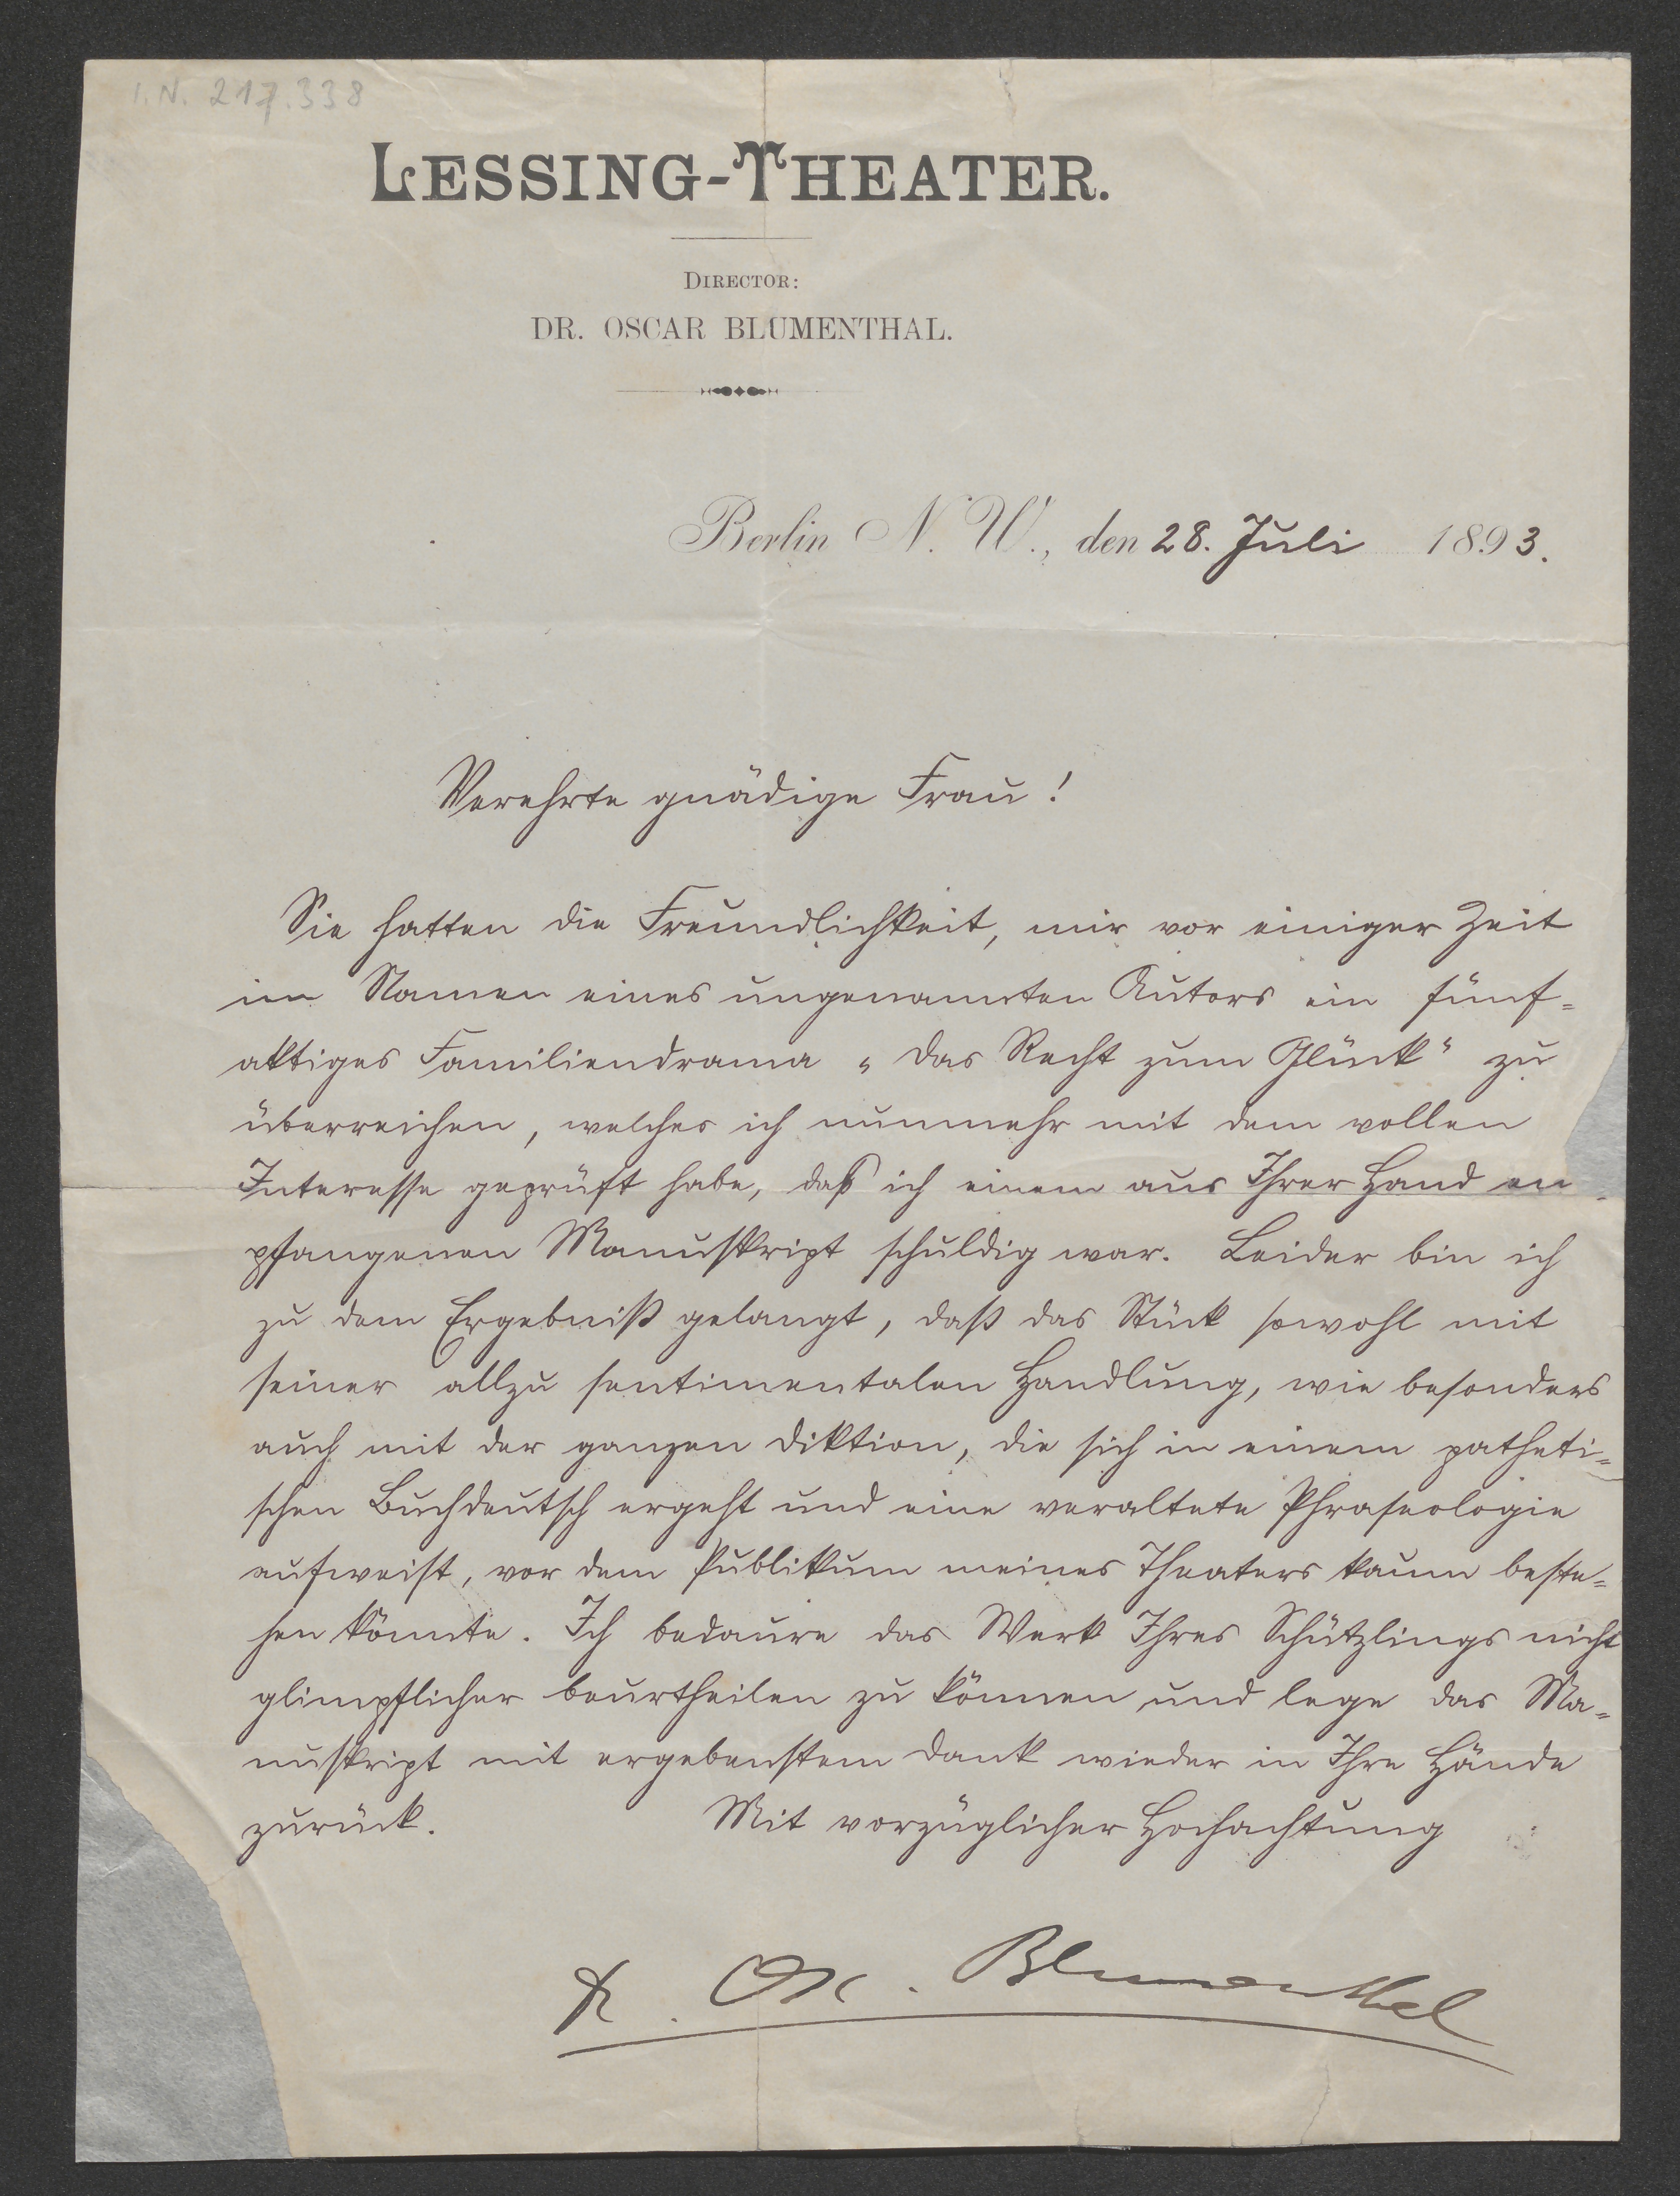 I.N. 217.338
LESSING-THEATER.
DIRECTOR:
DR. OSCAR BLUMENTHAL.
Berlin N. W., den 28. Juli 1893.
Verehrte gnädige Frau!
Sie hatten die Freundlichkeit, mir vor einiger Zeit
im Namen eines ungenannten Autors ein fünf-
aktiges Familiendrama „Das Recht zum Glück“ zu
überreichen, welches ich nunmehr mit dem vollen
Interesse geprüft habe, daß ich einem aus Ihrer Hand em
pfangenen Manuskript schuldig war. Leider bin ich
zu dem Ergebniß gelangt, daß das Stück sowohl mit
seiner allzu sentimentalen Handlung, wie besonders
auch mit der ganzen Diktion, die sich in einem patheti-
schen Buchdeutsch ergeht und eine veraltete Phraseologie
aufweist, vor dem Publikum meines Theaters kaum beste-
hen könnte. Ich bedaure das Werk Ihres Schützlings nicht
glimpflicher beurtheilen zu können und lege das Ma-
nuskript mit ergebenstem Dank wieder in Ihre Hände
zurück. Mit vorzüglicher Hochachtung
Dr. Osc. Blumenthal